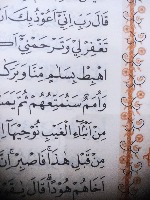 قَالَ رَبِّ إِنِّيٓ أَعُوذُ بِكَ أَنْ
تَغْفِرْ لِي وَتَرْحَمْنِيٓ أَ
ٱهْبِطْ بِسَلَٰمٍ مِّنَّا وَبَرَكَٰ
وَأُمَمٌ سَنُمَتِّعُهُمْ ثُمَّ يَمَسُّ
مِنْ أَنۢبَآءِ ٱلْغَيْبِ نُوحِيهَآ إِ
مِن قَبْلِ هَٰذَا فَٱصْبِرْ إِنَّ
أَخَاهُمْ هُودًا قَالَ يَٰقَوْ